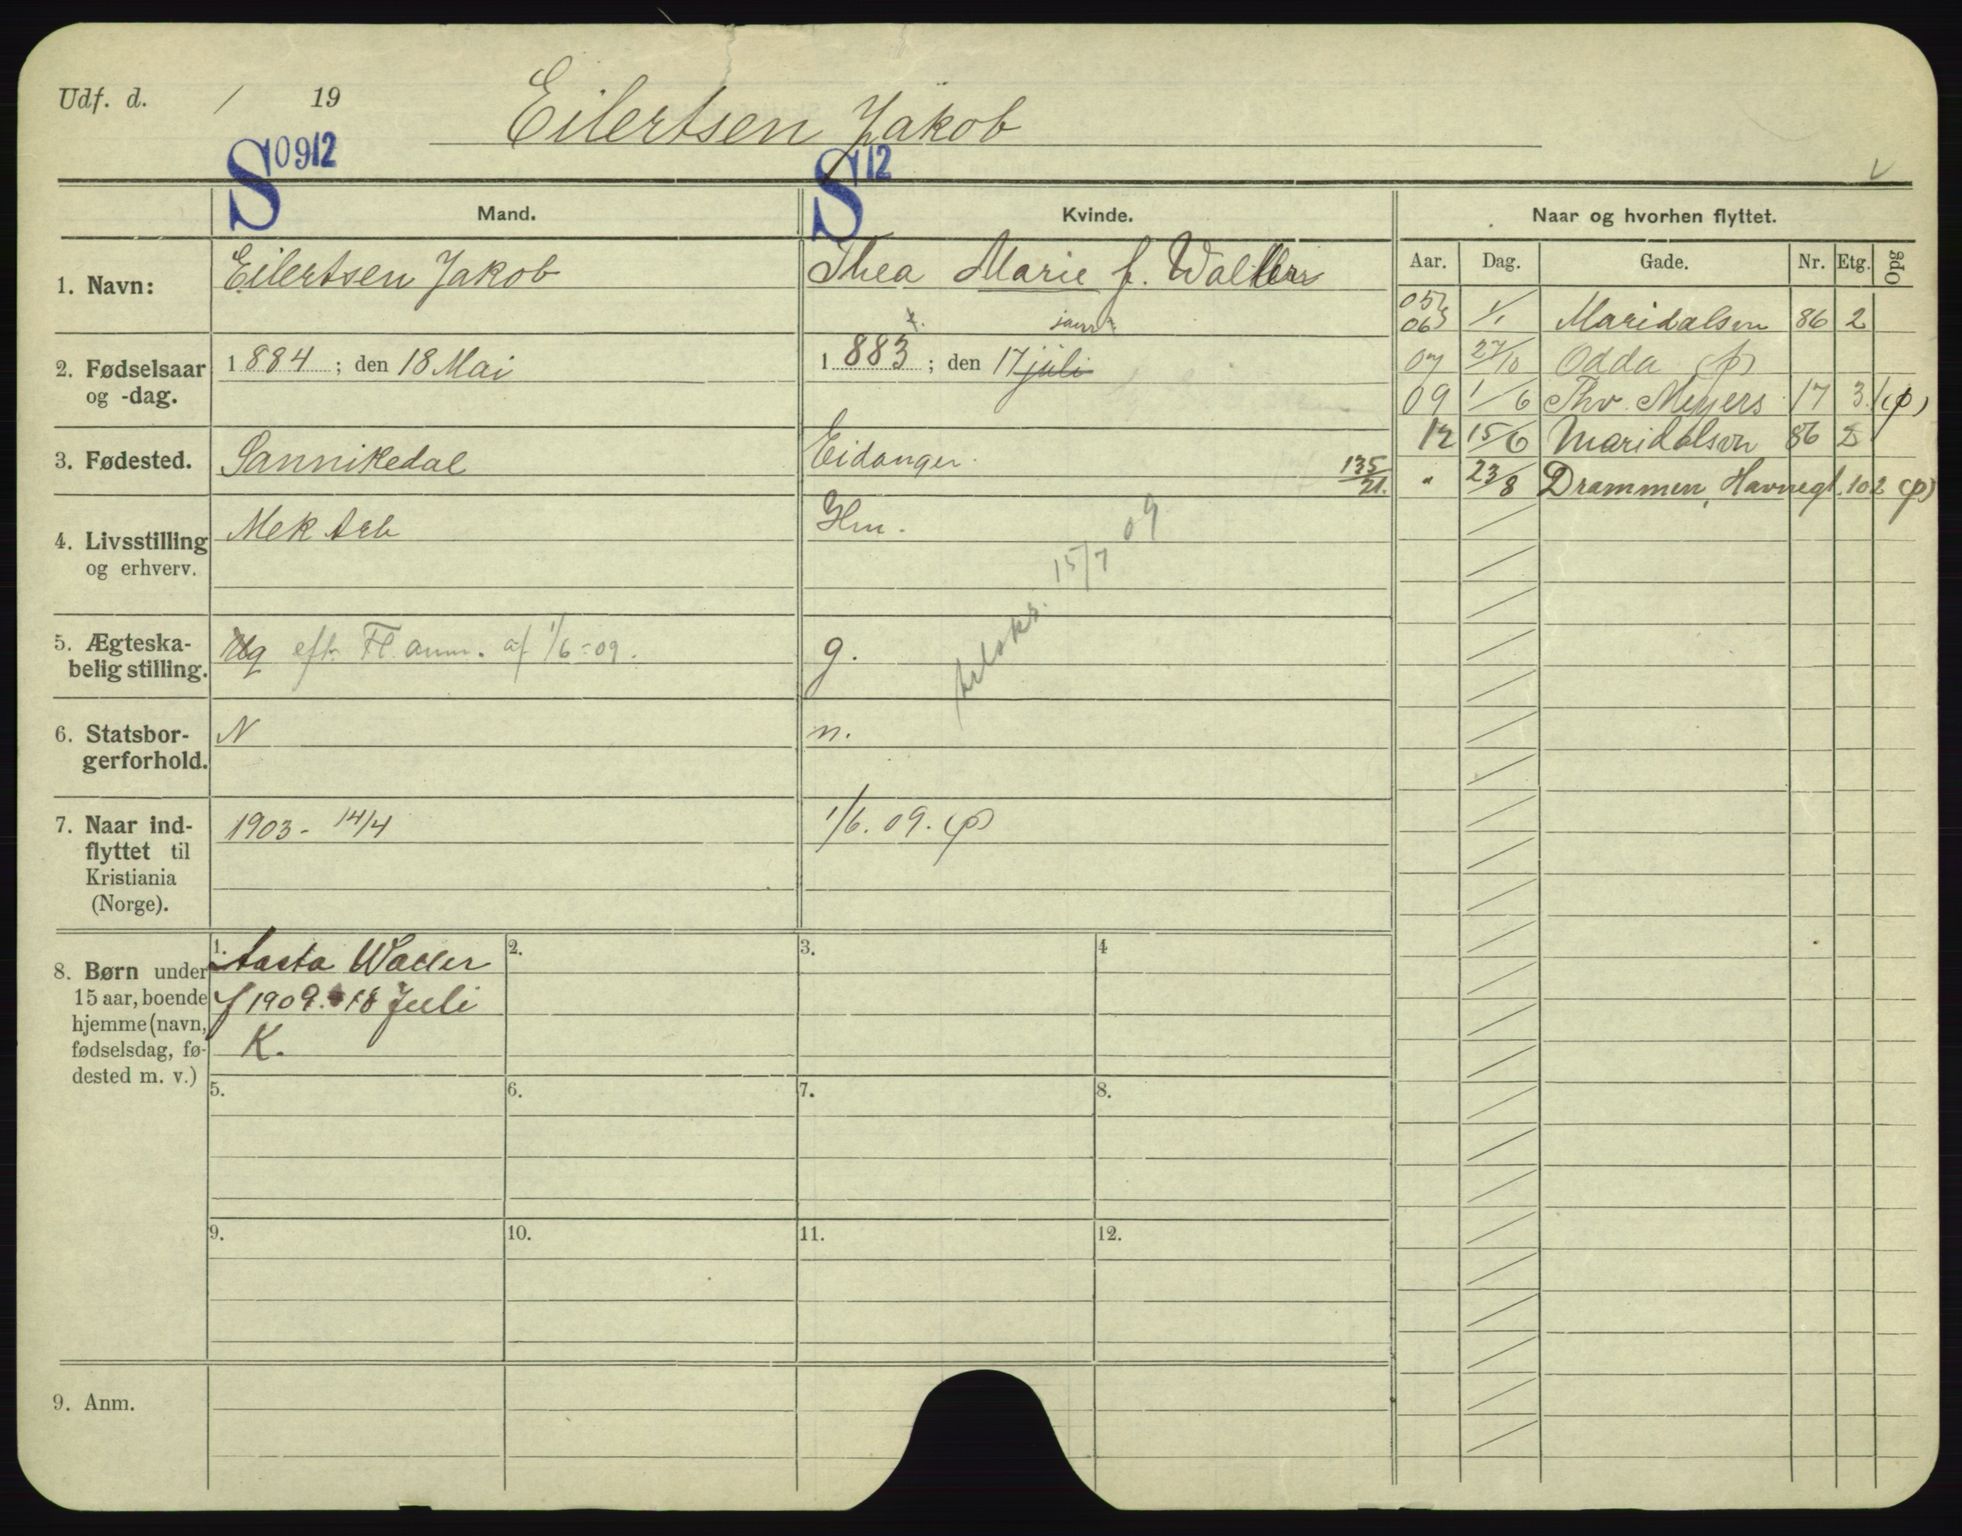 Udf. d. / 19
Eilertsen Jakob
S 0912
S 12
Mand.
Kvinde.
Naar og hvorhen flyttet.
Aar. Dag. Gade. Nr. Etg. Opg
1. Navn:
Eilertsen Jakob
Thea Marie f. Waller
2. Fødselsaar
og -dag.
1884; den 18 Mai
1883; den 17 juli
janr
3. Fødested.
Sannikedal
Eidanger.
135/21.
4. Livsstilling
og erhverv.
Mek Arb
Hm.
15/7 09
5. Ægteska-
belig stilling.
Ug eftr. Fl. anm. af 1/6-09.
g.
6. Statsbor-
gerforhold.
N
n.
7. Naar ind-
flyttet til
Kristiania
(Norge).
1903 - 14/4
1/6. 09. (p)
8. Børn under
15 aar, boende
hjemme (navn,
fødselsdag, fø-
dested m. v.)
1. Aasta Waller
f 1909. 18 Juli
K.
2.
3.
4
5.
6.
7.
8.
9.
10.
11.
12.
9. Anm.
05
06 1/1 Maridalsvn 86 2
07 27/10 Odda (p)
09 1/6 Thv. Meyers 17 3 (p)
12 15/6 Maridalsvn 86 2
" 23/8 Drammen, Havnegt. 102 (p)